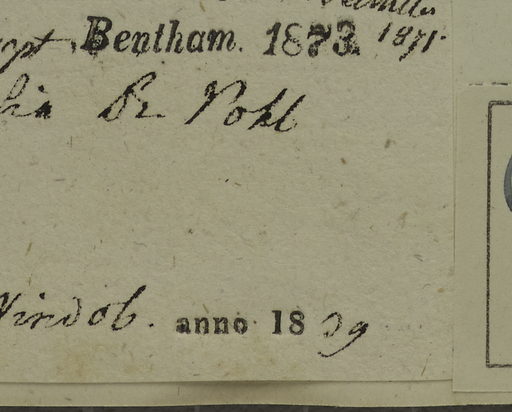 Bentham. 1873. 1871.
Dr. Pohl
Vindob. anno 18 39